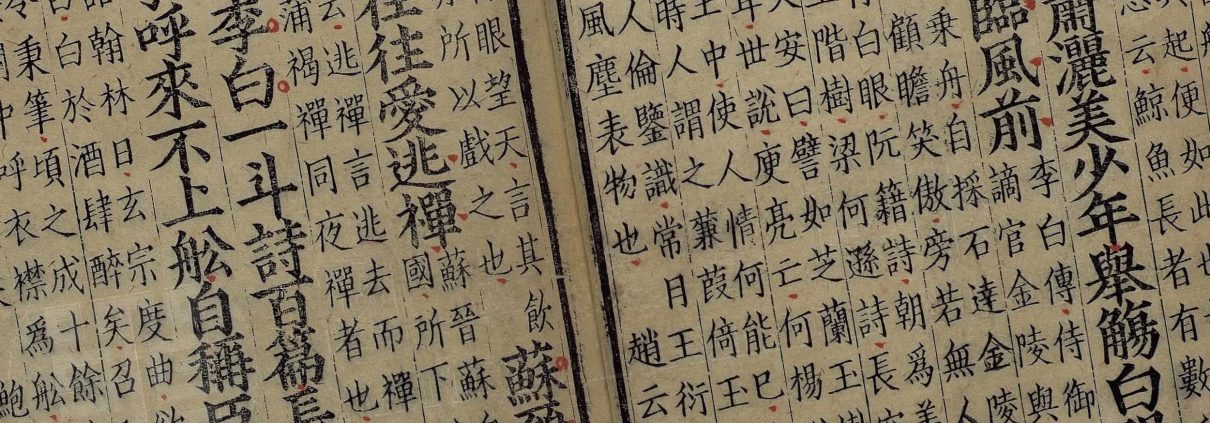 起便如此
云鯨魚長者有數
蕭灑美少年舉觴白
臨風前
李白傳侍御
謫官金陵與
乘舟自採石達金陵
顧瞻笑傲旁若無人
白眼阮籍詩朝為美
階樹梁何遜詩長
安曰譬如芝蘭玉
世說庾亮亡何楊
王中使人情何能已
時人謂之蒹葭倚玉
人倫鑒識常目王衍
風塵表物也 趙云
蘇晉
眼望天言其飲
所以戲之也
往往愛逃禪
蘇晉蘇
國所下
云逃禪言逃去而禪
蒲褐禪同夜禪者也
李白一斗詩百篇長
呼來不上舩自稱臣
翰林日玄宗度曲欲
白於酒肆醉矣召
秉筆頃之成十餘
呼衣襟為舩
鮑